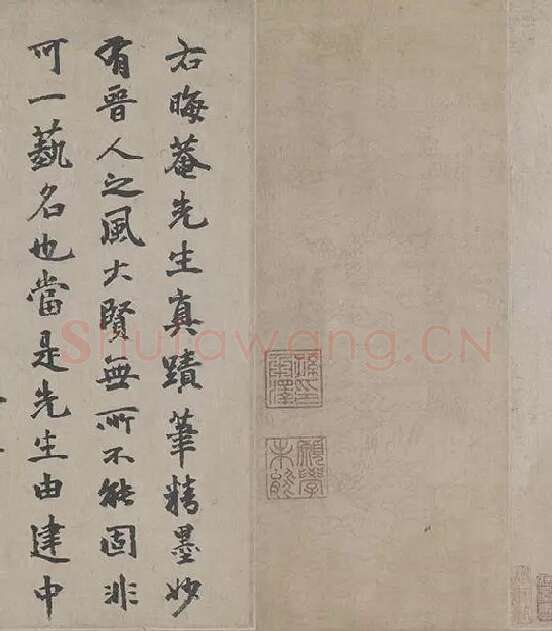 右晦菴先生真蹟筆精墨妙
有晉人之風大賢無所不能固非
可一藝名也當是先生由建中
Shufawang.CN
願學
未能